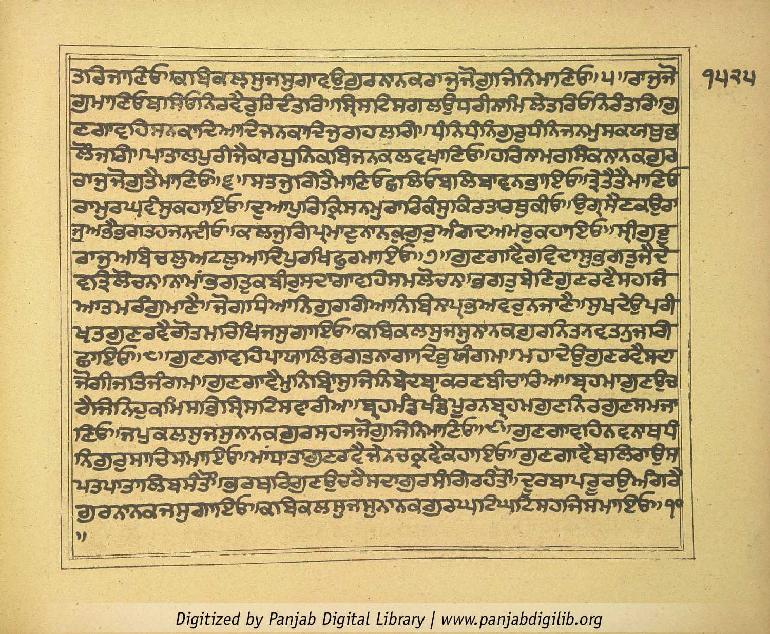 ੧੫੨੫
ਤਰਿਜਾਣਿਓ॥ਕਬਿਕਲਸੁਜਸੁਗਾਵਉਗੁਰਨਾਨਕਰਾਜੁਜੋਗੁਜਿਨਿਮਾਣਿਓ॥੫॥ਰਾਜੁਜੋ
ਗੁਮਾਣਿਓਬਸਿਓਨਿਰਵੈਰੁਰਿਦੰਤਰਿ॥ਸ੍ਰਿਸਟਿਸਗਲਉਧਰੀਨਾਮਿਲੇਤਰਿਓਨਿਰੰਤਰਿ॥ਗੁ
ਣਗਾਵਹਿਸਨਕਾਦਿਆਦਿਜਨਕਾਦਿਜੁਗਹਲਗਿ॥ਧੰਨਿਧੰਨਿਗੁਰੁਧੰਨਿਜਨਮੁਸਕਯਥੁਭ
ਲੌਜਗਿ॥ਪਾਤਾਲਪੁਰੀਜੈਕਾਰਧੁਨਿਕਬਿਜਨਕਲਵਖਾਣਿਓ॥ਹਰਿਨਾਮਰਸਿਕਨਾਨਕਗੁਰ
ਰਾਜੁਜੋਗੁਤੈਮਾਣਿਓ॥੬॥ਸਤਜੁਗਿਤੈਮਾਣਿਓਛਲਿਓਬਲਿਬਾਵਨਭਾਇਓ॥ਤ੍ਰੇਤੈਤੈਮਾਣਿਓ
ਰਾਮੁਰਘੁਵੰਸੁਕਹਾਇਓ॥ਦੁਆਪੁਰਿਕ੍ਰਿਸਨਮੁਰਾਰਿਕੰਸੁਕਿਰਤਾਰਥੁਕੀਓ॥ਉਗ੍ਰਸੈਣਕਉਰਾ
ਜੁਅਭੈਭਗਤਹਜਨਦੀਓ॥ਕਲਜੁਗਿਪ੍ਰਮਾਣੁਨਾਨਕੁਗੁਰੁਅੰਗਦੁਅਮਰੁਕਹਾਇਓ॥ਸ੍ਰੀਗੁਰੂ
ਰਾਜੁਅਬਿਚਲੁਅਟਲੁਆਦਿਪੁਰਖਿਫੁਰਮਾਇਓ॥੭॥ਗੁਣਗਾਵੈਰਵਿਦਾਸੁਭਗਤੁਜੈਦੇ
ਵਤ੍ਰਿਲੋਚਨ॥ਨਾਮਾਭਗਤੁਕਬੀਰੁਸਦਾਗਾਵਹਿਸਮਲੋਚਨ॥ਭਗਤੁਬੇਣਿਗੁਣਰਵੈਸਹਜਿ
ਆਤਮਰੰਗੁਮਾਣੈ॥ਜੋਗਧਿਆਨਿਗੁਰਗਿਆਨਿਬਿਨਾਪ੍ਰਭਅਵਰੁਨਜਾਣੈ॥ਸੁਖਦੇਉਪਰੀ
ਖ੍ਯਤੁਗੁਣਰਵੈਗੋਤਮਰਿਖਿਜਸੁਗਾਇਓ॥ਕਬਿਕਲਸੁਜਸੁਨਾਨਕਗੁਰਨਿਤਨਵਤਨੁਜਗਿ
ਛਾਇਓ॥੮॥ਗੁਣਗਾਵਹਿਪਾਯਾਲਿਭਗਤਨਾਗਾਦਿਭੁਯੰਗਮ॥ਮਹਾਦੇਉਗੁਣਰਵੈਸਦਾ
ਜੋਗੀਜਤਿਜੰਗਮ॥ਗੁਣਗਾਵੈਮੁਨਿਬ੍ਯਾਸੁਜਿਨਿਬੇਦਬ੍ਯਾਕਰਣਬੀਚਾਰਿਅ॥ਬ੍ਰਹਮਾਗੁਣਉਚ
ਰੈਜਿਨਿਹੁਕਮਿਸਭਸ੍ਰਿਸਟਿਸਵਾਰੀਅ॥ਬ੍ਰਹਮੰਡਖੰਡਪੂਰਨਬ੍ਰਹਮੁਗੁਣਨਿਰਗੁਣਸਮਜਾ
ਣਿਓ॥ਜਪੁਕਲਸੁਜਸੁਨਾਨਕਗੁਰਸਹਜੁਜੋਗੁਜਿਨਿਮਾਣਿਓ॥੯॥ਗੁਣਗਾਵਹਿਨਵਨਾਥਧੰ
ਨਿਗੁਰੁਸਾਚਿਸਮਾਇਓ॥ਮਾਂਧਾਤਾਗੁਣਰਵੈਜੇਨਚਕ੍ਰਵੈਕਹਾਇਓ॥ਗੁਣਗਾਵੈਬਲਿਰਾਉਸ
ਪਤਪਾਤਾਲਿਬਸੰਤੌ॥ਭਰਥਰਿਗੁਣਉਚਰੈਸਦਾਗੁਰਸੰਗਿਰਹੰਤੌ॥ਦੂਰਬਾਪਰੂਰਉਅੰਗਰੈ
ਗੁਰਨਾਨਕਜਸੁਗਾਇਓ॥ਕਬਿਕਲਸੁਜਸੁਨਾਨਕਗੁਰਘਟਿਘਟਿਸਹਜਿਸਮਾਇਓ॥੧੦
॥
Digitized by Panjab Digital Library | www.panjabdigilib.org